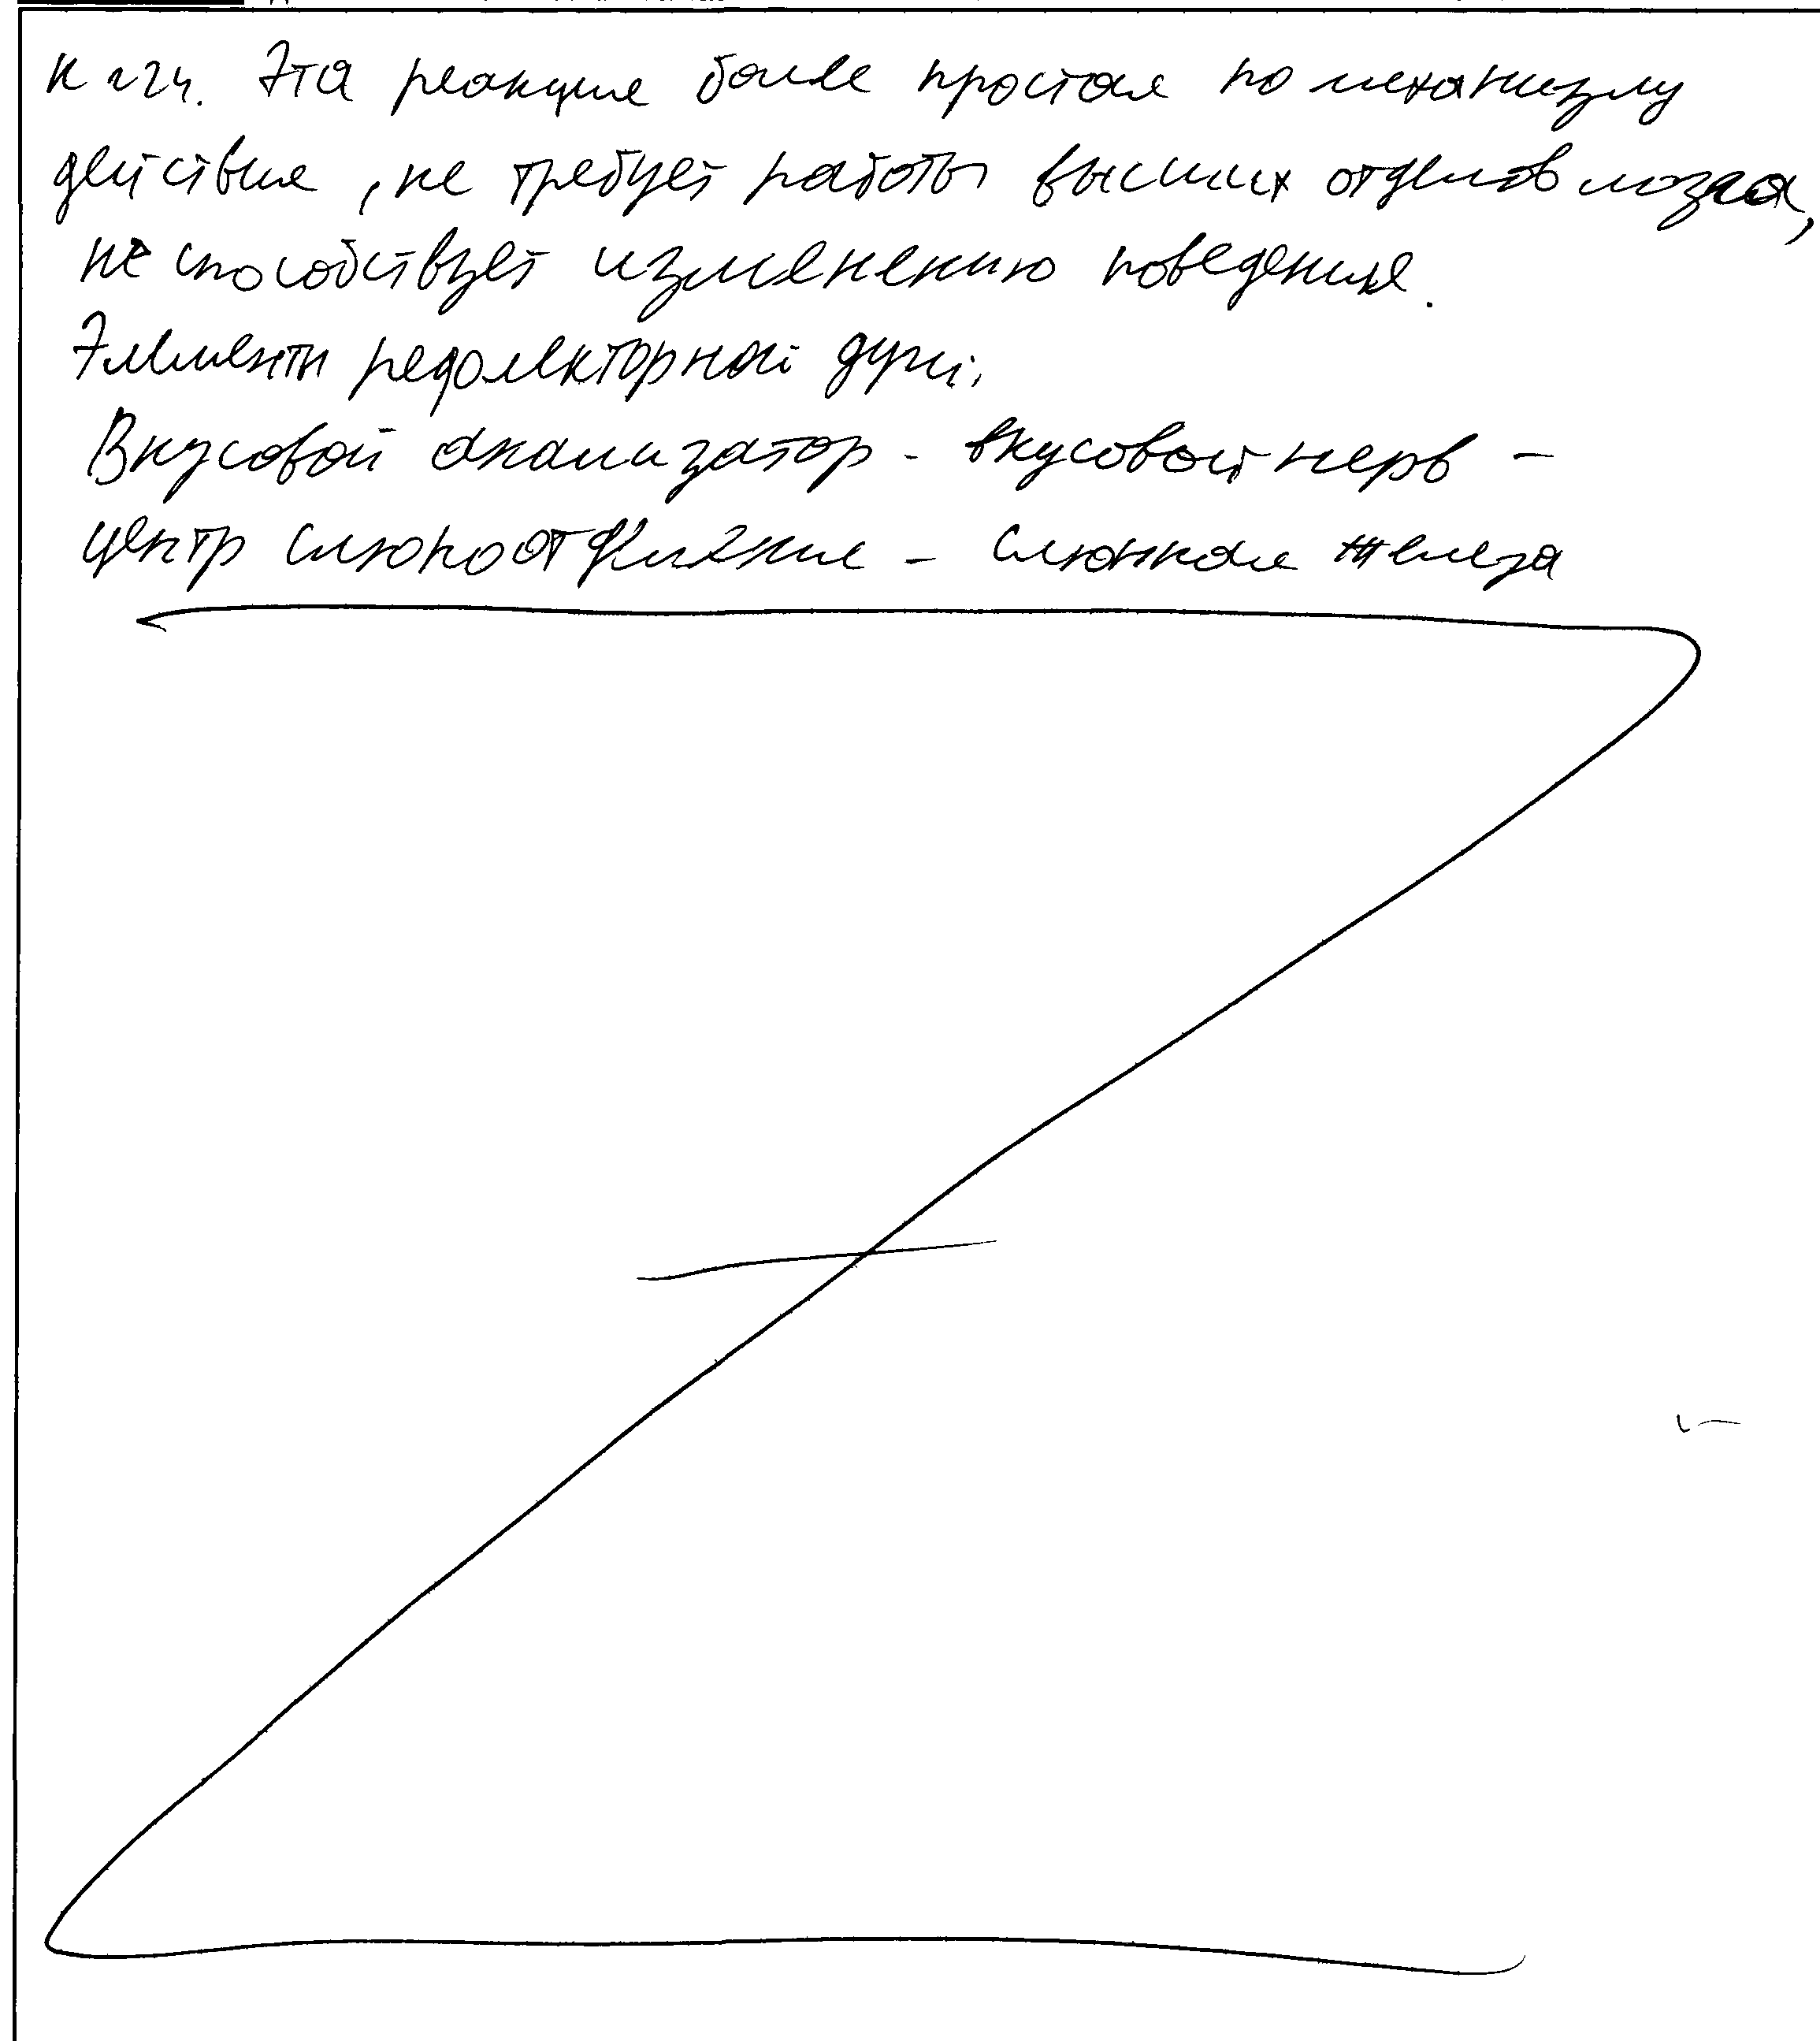 К 24. Эта реакция более простая по механизму
действия, не требует работы высших отделов мозга,
не способствует изменению поведения.
Элементы рефлекторной дуги:
Вкусовой анализатор - вкусовой нерв -
центр слюноотделения - слюнная железа